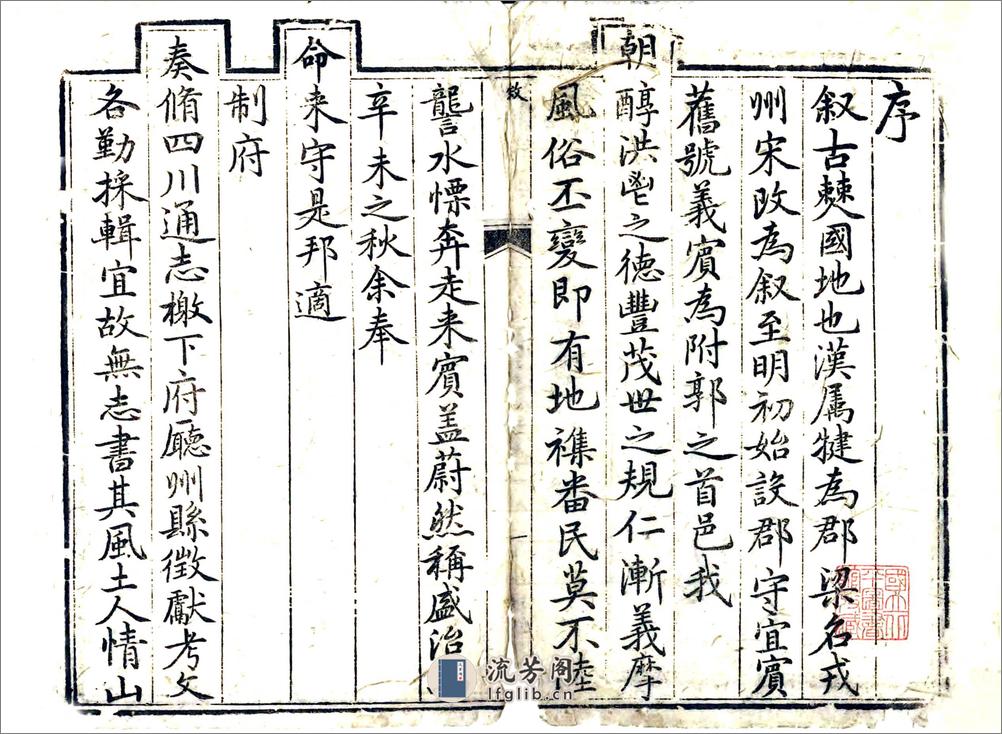 序
叙古僰國地也漢属犍為郡梁名戎
州宋改為叙至明初始設郡守宜賓
舊號義賓為附郭之首邑我
朝醇洪鬯之德豐茂世之規仁漸義摩
風俗丕變即有地襍畨民莫不陸
敘
讋水慄奔走来賓盖蔚然稱盛治
辛未之秋余奉
命来守是邦適
制府
奏脩四川通志檄下府廳州縣徵獻考文
各勤採輯宜故無志書其風土人情山
流芳阁
lfglib.cn